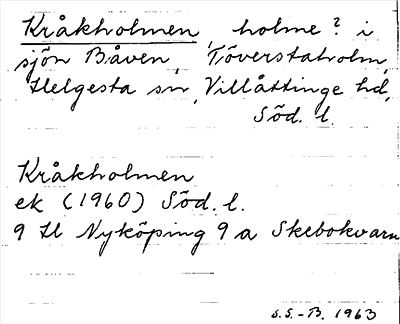 Kråkholmen, holme? i
sjön Båven, Töverstaholm,
Helgesta sn, Villåttinge hd,
Söd. l.
Kråkholmen
ek (1960) Söd. l.
9 H Nyköping 9 a Skebokvarn
S.S.-B. 1963